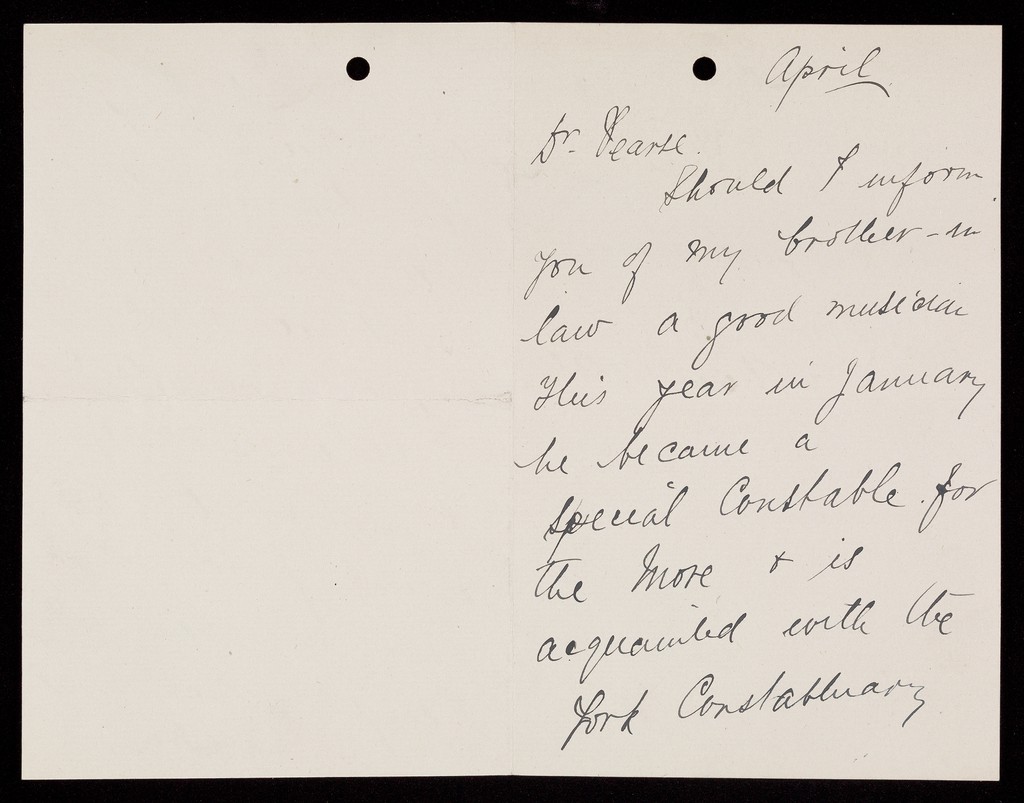 April
Dr. Pearse.
Should I inform
you of my brother-in
law a good musician
this year in January
he became a
special Constable for
the More & is
acquainted with the
York Constabluary